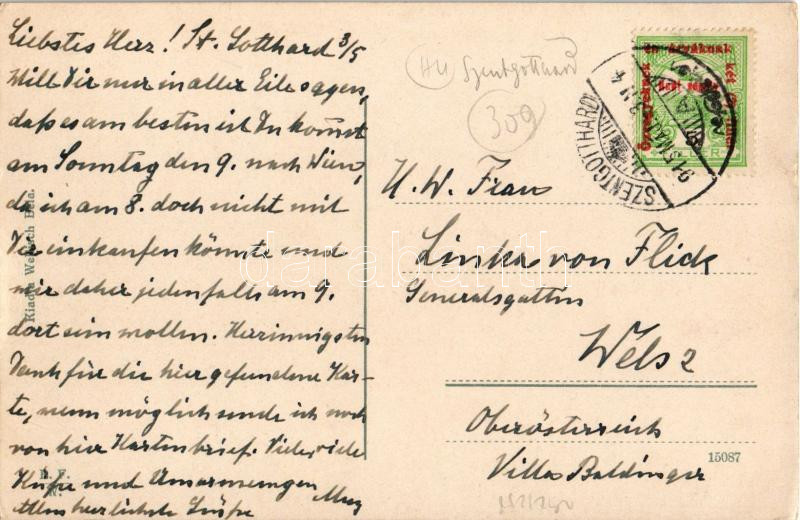 Liebstes Herz! St. Gotthard 3/5
Will Dir nur in aller Eile sagen,
daß es am besten ist Du kommst
am Sonntag den 9. nach Wien,
da ich am 8. doch nicht mit
Dir einkaufen könnte und
wir daher jedenfalls am 9.
dort sein wollen. Herzinnigsten
Dank für die hier gefundene Kar-
te, wenn möglich sende ich noch
von hier Kartenbrief. Viele, viele
Küsse und Umarmungen
Allerherzlichste Grüße
Kiadja Wellisch Béla.
HU Szentgotthárd
309
SZENTGOTTHÁRD
H. W. Frau
Linka von Flick
Generalsgattin
Wels 2
Oberösterreich
Villa Baldinger
15087
darabanth